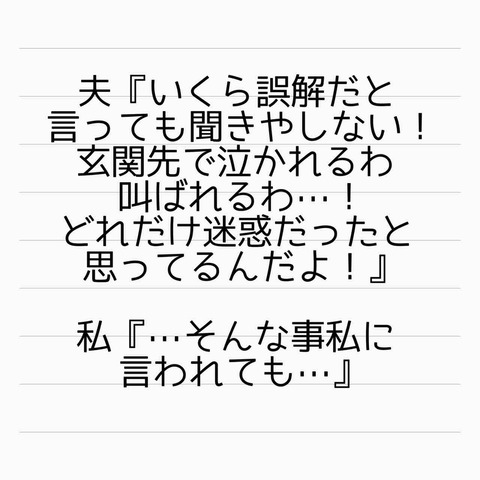 夫『いくら誤解だと
言っても聞きやしない！
玄関先で泣かれるわ
叫ばれるわ…！
どれだけ迷惑だったと
思ってるんだよ！』
私『…そんな事私に
言われても…』